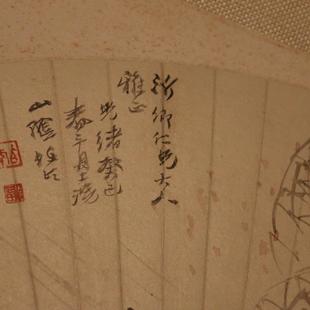 卿仁兄大人
雅正
光緒癸巳
春三月上浣
山陰